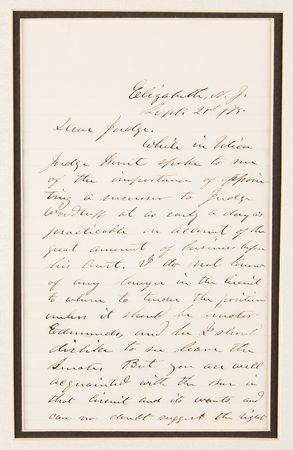 Elizabeth, N. J.
Sept. 21st /75
Dear Judge.
While in Utica
Judge Hunt spoke to me
of the importance of appoin
ting a successor to Judge
Woodruff at as early a day as
practicable on account of the
great amount of business before
his Court. I do not know
of any lawyer in the Circuit
to whom to tender the position
unless it should be senator
Edmunds, and he I should
dislike to see leave the
Senate. But you are well
acquainted with the bar in
that Circuit and its wants, and
can no doubt suggest the right